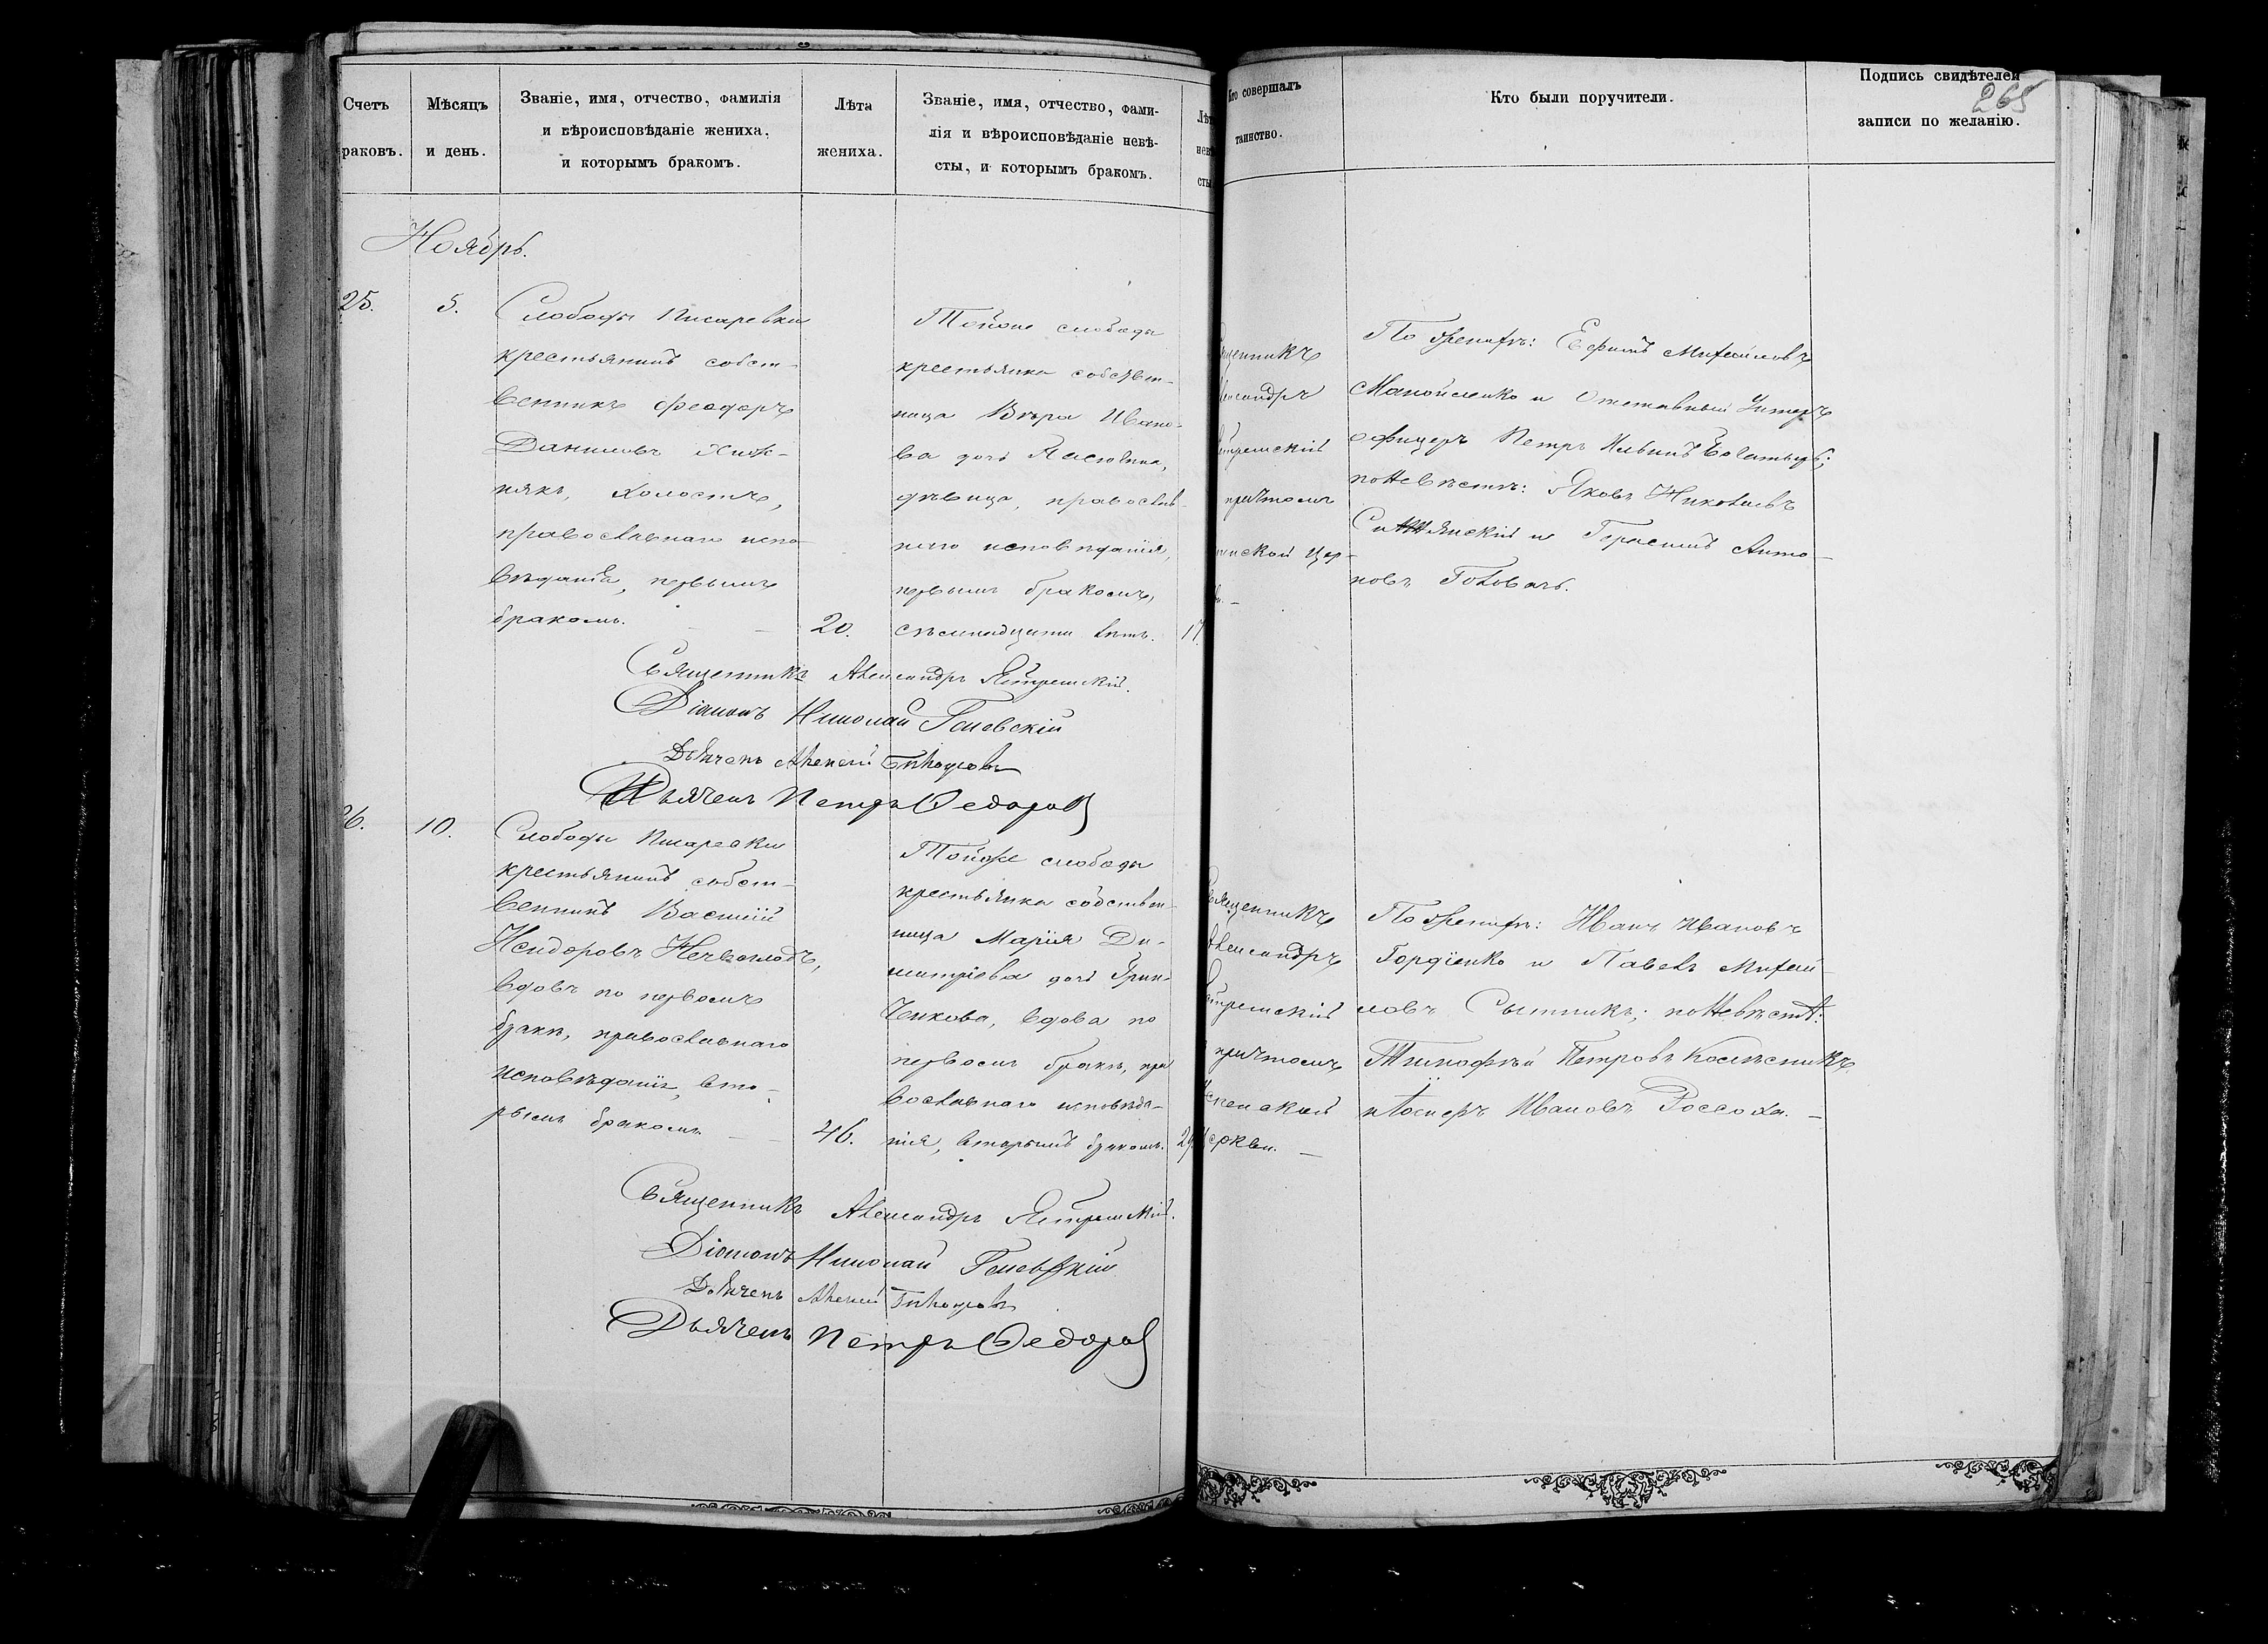 Счетъ
раковъ.
Мѣсяцъ
и день.
Званіе, имя, отчество, фамилія
и вѣроисповѣданіе жениха,
и которымъ бракомъ.
Лѣта
жениха.
Званіе, имя, отчество, фами-
лія и вѣроисповѣданіе невѣ-
сты, и которымъ бракомъ.
Кто совершалъ
таинство.
Кто были поручители.
Подпись свидѣтелей
записи по желанію.
265
Ноябрь.
25.
5.
Слободы Писаревки
крестьянинъ собст-
венникъ Феодоръ
Даниловъ
холостъ,
православнаго испо-
вѣданія, первымъ
бракомъ.
20.
Тойже слободы
крестьянка собствен-
ница Вѣра Ивано-
ва дочь
дѣвица, православ-
наго исповѣданія,
первымъ бракомъ,
семнадцати лѣтъ.
17
щенникъ
ександръ
стремскій
причтомъ
енской Цер-
ви. —
По женихѣ: Ефимъ Михайловъ
Манойленко и Отставный Унтеръ
офицеръ Петръ Ильинъ Богатырь;
по невѣстѣ: Яковъ Николаевъ
и Герасимъ Анто-
новъ Головачь.
Священникъ Александръ Ястремскій.
Діаконъ Николай Геневскій
Дьячекъ Алексій
Дьячекъ Петръ Ѳедоровъ
26.
10.
Слободы Писаревки
крестьянинъ собст-
венникъ Василій
Исидоровъ Нечволодъ,
вдовъ по первомъ
бракѣ, православнаго
исповѣданія, вто-
рымъ бракомъ.
46.
Тойже слободы
крестьянка собствен-
ница Марія Ди-
митріева дочь Грин-
ченкова, вдова по
первомъ бракѣ, пра
вославнаго исповѣда-
нія, вторымъ бракомъ.
29
Священникъ
Александръ
стремскій
причтомъ
сенской
еркви. —
По женихѣ: Иванъ Ивановъ
Гордіенко и Павелъ Михай-
ловъ Сытникъ; по невѣстѣ:
Тимофѣй Петровъ Колѣсникъ
и Іосифъ Ивановъ Россоха. —
Священникъ Александръ Ястремскій.
Діаконъ Николай Геневскій
Дьячекъ Алексій
Дьячекъ Петръ Ѳедоровъ